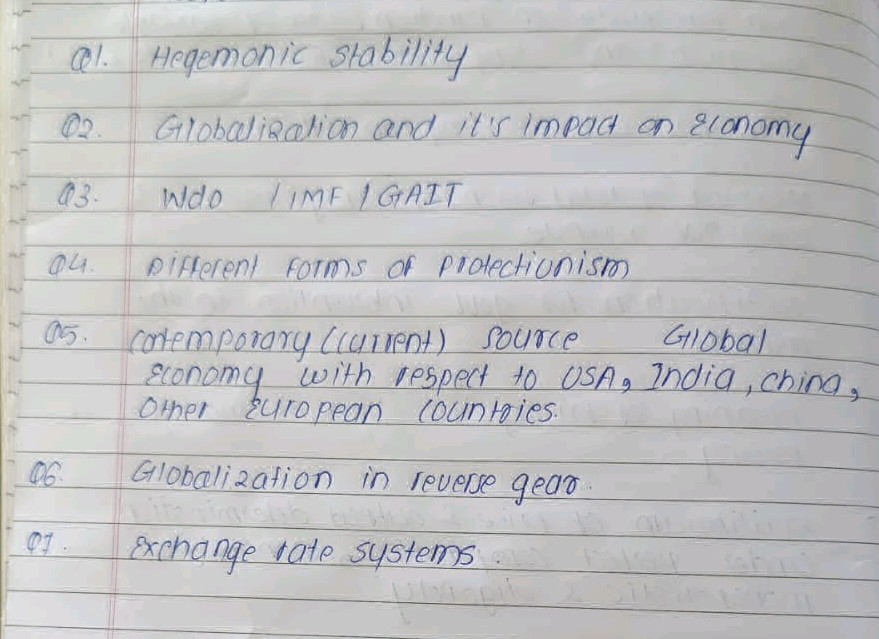 Q1. Hegemonic stability
Q2. Globalization and it's impact on economy
Q3. WdO / IMF / GAIT
Q4. Different forms of protectionism
Q5. contemporary (current) source Global
economy with respect to USA, India, china,
Other European countries.
Q6. Globalization in reverse gear.
Q7. Exchange rate systems.